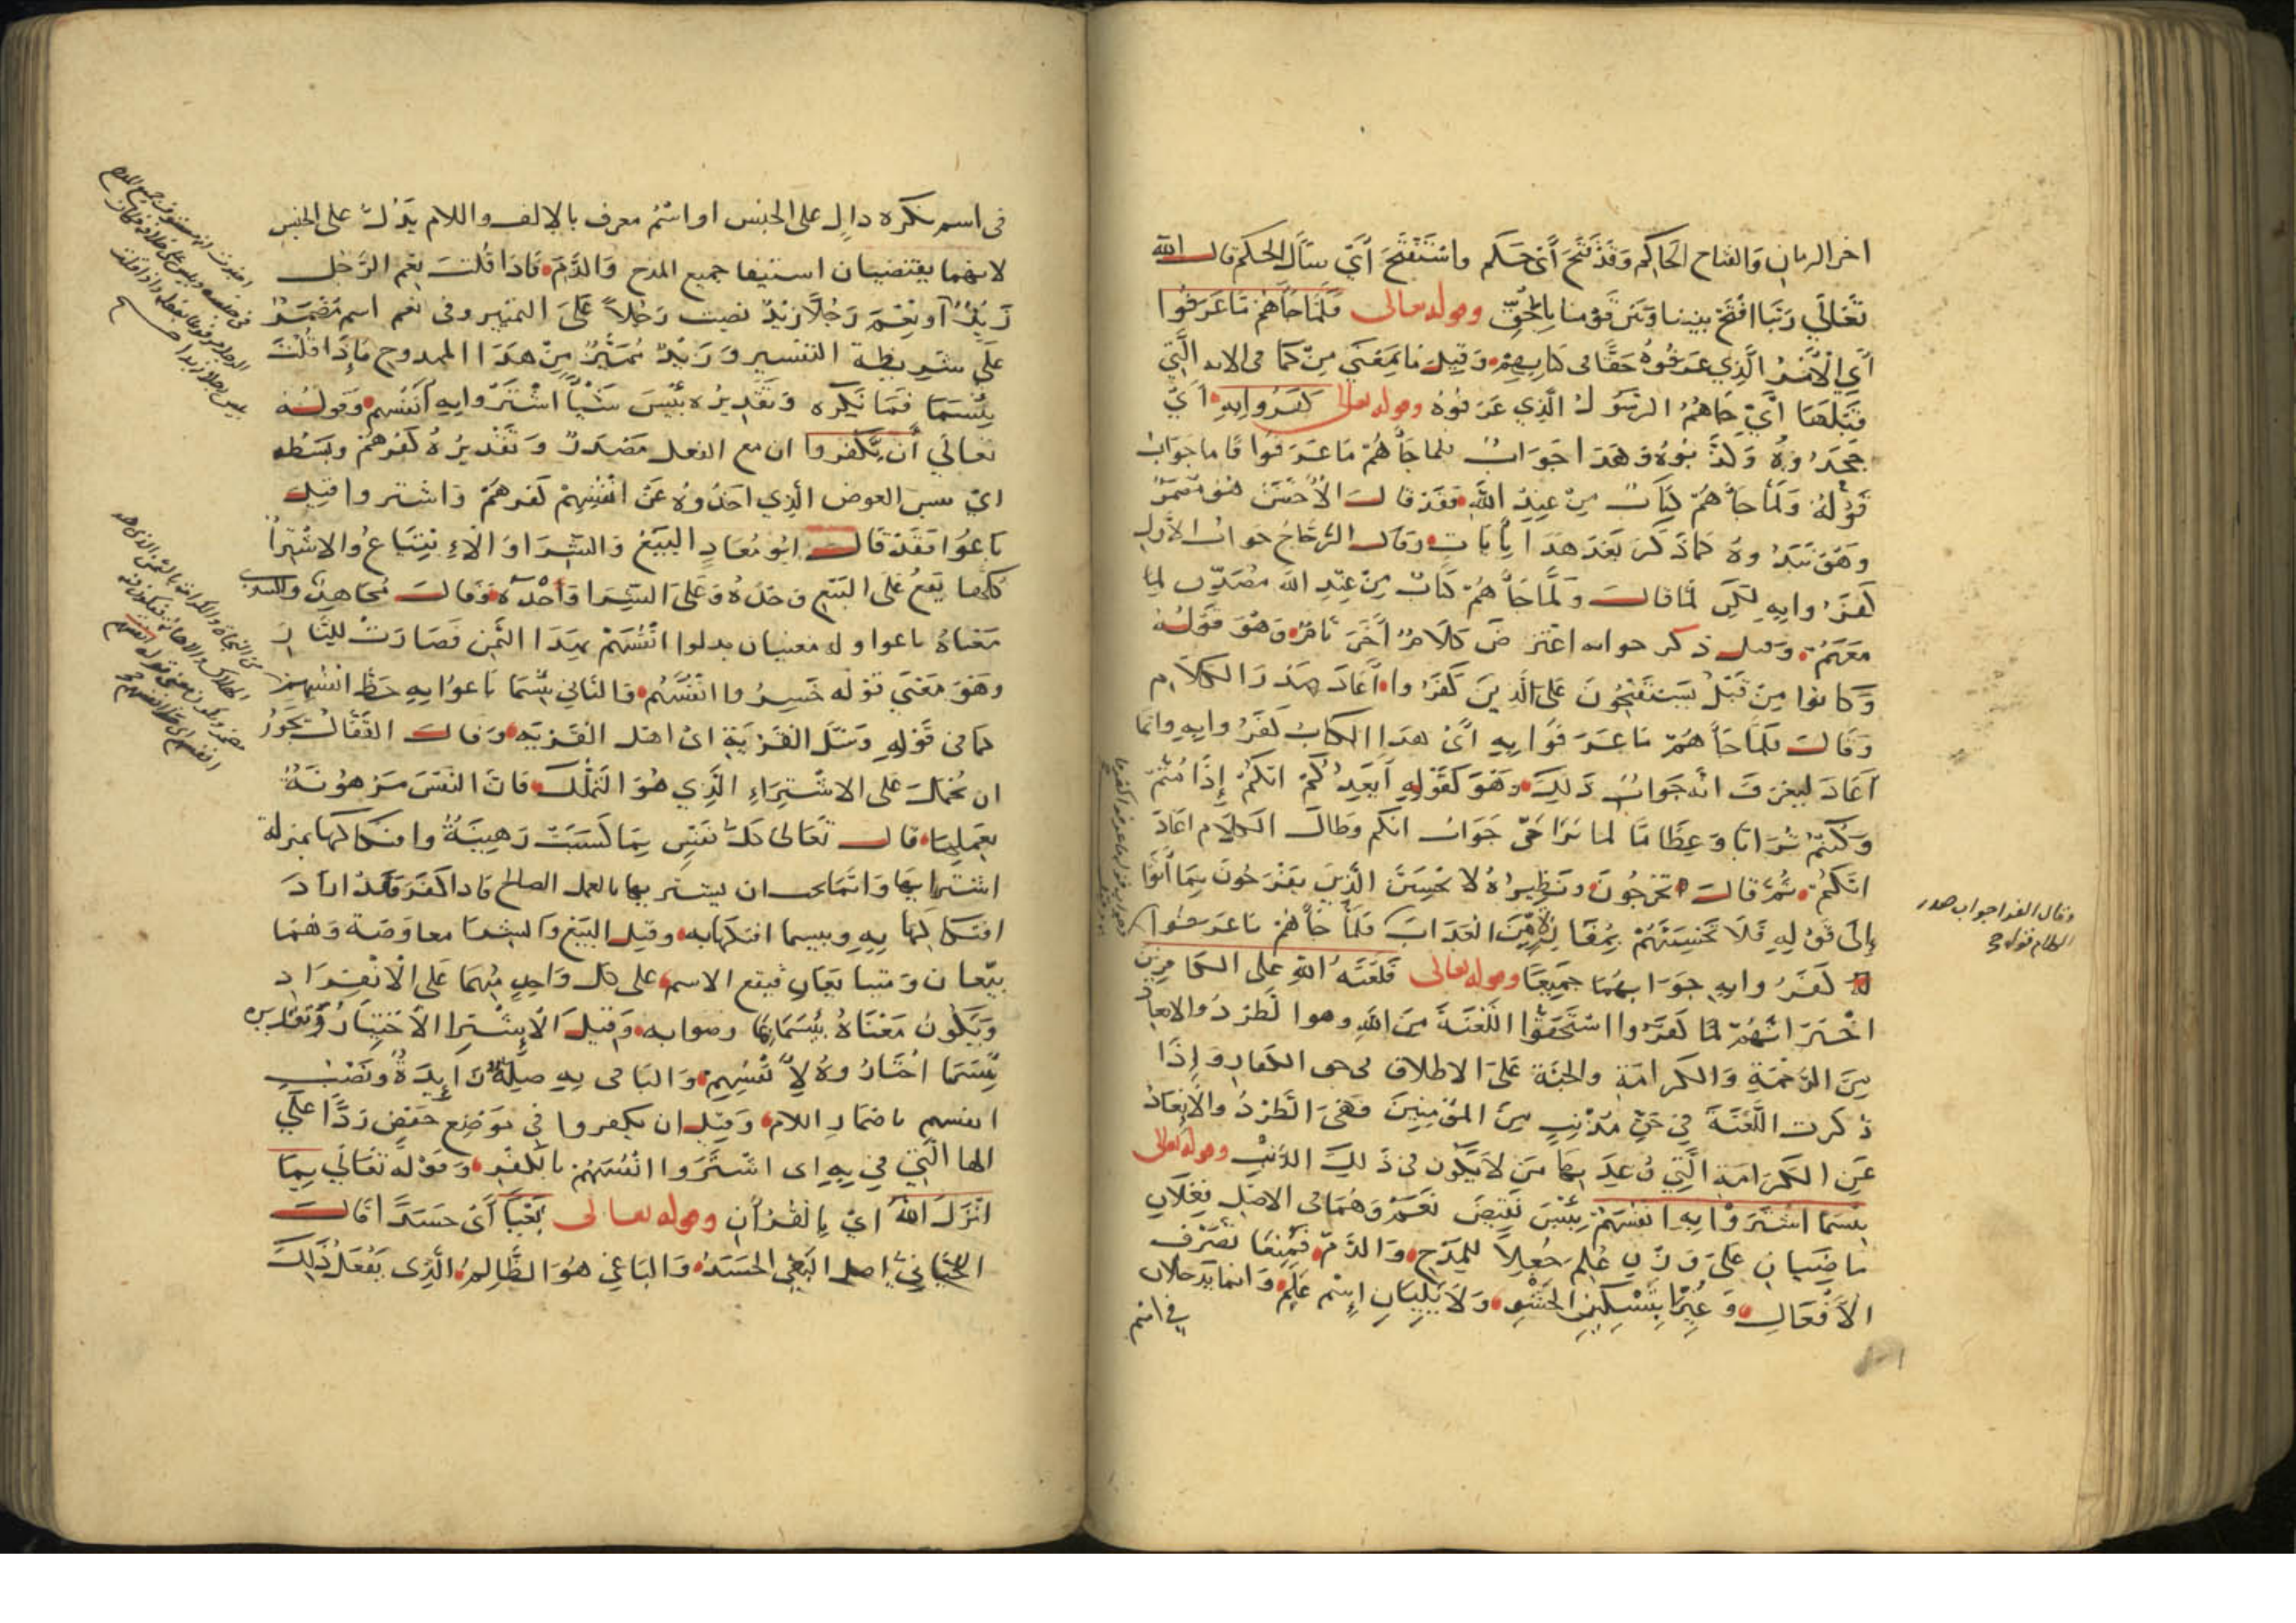 اخر الزمان والفتاح الحاكم وقد فتح أي حكم واستفتح أي سأل الحكم قال الله
تعالى ربنا افتح بيننا وبين قومنا بالحق وقوله تعالى فلما جاءهم ما عرفوا
أي الأمر الذي عرفوه حقا في كتابهم وقيل ما بمعنى من كما في الاية التي
قبلها أي جاهم الرسول الذي عرفوه وقوله تعالى كفروا به أي
جحدوه وكذبوه وهذا جواب فلما جاءهم ما عرفوا فاما جواب
قوله ولما جاءهم كتاب من عند الله فقد قال الأخفش هو مضمر
وهو نبذوه كما ذكر بعد هذا بايات وقال الزجاج جواب الأول
كفروا به لكن لما قال ولما جاءهم كتاب من عند الله مصدق لما
معهم وقبل ذكر جوابه اعترض كلام اخر تام وهو قوله
وكانوا من قبل يستفتحون على الذين كفروا أعاد صدر الكلام
وقال فلما جاءهم ما عرفوا به أي هذا الكتاب كفروا به وانما
أعاد ليعرف انه جواب ذلك وهو كقوله أيعدكم انكم إذا متم
وكنتم ترابا وعظاما لما تراخى جواب انكم وطال الكلام اعاد
انكم ثم قال مخرجون ونظيره لا تحسبن الذين يفرحون بما أتوا
إلى قوله فلا تحسبنهم بمفازة من العذاب فلما جاءهم ما عرفوا
كفروا به جوابهما جميعا وقوله تعالى فلعنة الله على الكافرين
اخبر انهم لما كفروا استحقوا اللعنة من الله وهو الطرد والابعاد
من الرحمة والكرامة والجنة على الاطلاق في حق الكفار وإذا
ذكرت اللعنة في حق مذنب من المؤمنين فهي الطرد والإبعاد
عن الكرامة التي وعد بها من لا يكون في ذلك الذنب وقوله تعالى
بئسما اشتروا به انفسهم بئس نقيض نعم وهما في الاصل فعلان
ماضيان على وزن علم جعلا للمدح والذم فمنعا تصرف
الأفعال وغيرا بتسكين الحشو ولا يليان اسم علم وانما يدخلان
في اسم
وقال الفرا جواب صدر
الكلام قوله
في اسم نكرة دال على الجنس او اسم معرف بالالف واللام يدل على الجنس
لانهما يقتضيان استيفا جميع المدح والذم فاذا قلت نعم الرجل
زيد أو نعم رجلا زيد نصبت رجلا على التمييز وفي نعم اسم مضمر
على شريطة التفسير وزيد مميز من هذا الممدوح فإذا قلت
بئسما فما نكرة وتقديره بئس شيئا اشتروا به أنفسهم وقوله
تعالى أن يكفروا ان مع الفعل مصدر وتقديره كفرهم وبسطه
أي بئس العوض الذي اخذوه عن انفسهم كفرهم واشتروا قيل
باعوا فقد قال ابو معاذ البيع والشرا والابتياع والاشترا
كلها يقع على البيع وحده وعلى الشرا وحده وقال مجاهد والسدي
معناه باعوا وله معنيان بدلوا انفسهم بهذا الثمن فصارت للنار
وهو معنى قوله خسروا انفسهم والثاني بئسما باعوا به حظ انفسهم
كما في قوله وسئل القرية اي اهل القرية وقال القفال يجوز
ان يحمل على الاشتراء الذي هو التملك فان النفس مرهونة
بعملها قال تعالى كل نفس بما كسبت رهينة وافتكاكها بمنزلة
اشترائها وانما يجب ان يشتريها بالعمل الصالح فاذا كفر فقد اراد
افتكاكها به وبئسما افتكها به وقيل البيع والشرا معاوضة وهما
بيعان ومتبايعان فيقع الاسم على كل واحد منهما على الانفراد
ويكون معناه بئسما رضوا به وقيل الاشترا الاختيار وتقديره
بئسما اختاروه لأنفسهم والبا في به صلة زائدة ونصب
انفسهم باضمار اللام وقيل ان يكفروا في موضع خفض ردا على
الها التي في به اي اشتروا انفسهم بالكفر وقوله تعالى بما
انزل الله أي بالقرآن وقوله تعالى بغيا أي حسدا قال
اللحياني اصل البغي الحسد والباغي هو الظالم الذي يفعل ذلك